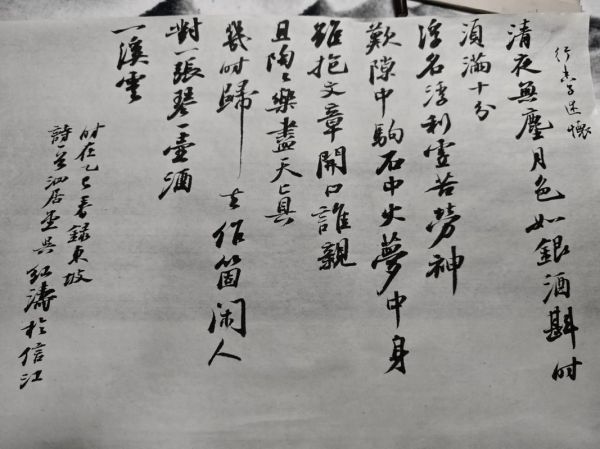 行香子述懷
清夜無塵月色如銀酒斟時
須滿十分
浮名浮利虛苦勞神
歎隙中駒石中火夢中身
雖抱文章開口誰親
且陶々樂盡天真
幾時歸去作箇闲人
對一張琴一壺酒
一溪雲
時在乙巳春錄東坡
詩一首居吳紅濤於信江